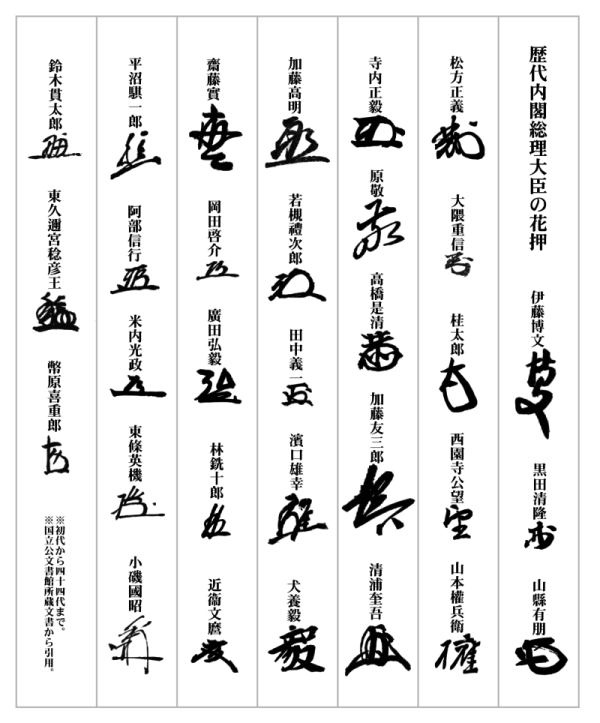 歴代内閣総理大臣の花押
伊藤博文
黒田清隆
山縣有朋
松方正義
大隈重信
桂太郎
西園寺公望
山本權兵衛
寺内正毅
原敬
高橋是清
加藤友三郎
清浦奎吾
加藤高明
若槻禮次郎
田中義一
濱口雄幸
犬養毅
齋藤實
岡田啓介
廣田弘毅
林銑十郎
近衞文麿
平沼騏一郎
阿部信行
米内光政
東條英機
小磯國昭
鈴木貫太郎
東久邇宮稔彦王
幣原喜重郎
※初代から四十四代まで。
※国立公文書館所蔵文書から引用。